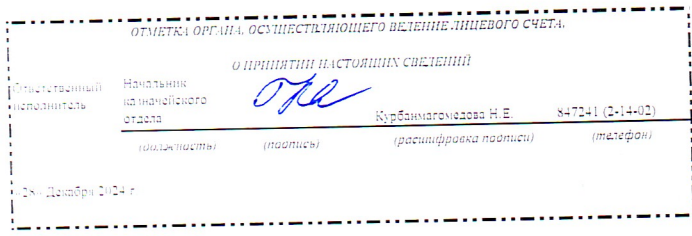 ОТМЕТКА ОРГАНА, ОСУЩЕСТВЛЯЮЩЕГО ВЕДЕНИЕ ЛИЦЕВОГО СЧЕТА,
О ПРИНЯТИИ НАСТОЯЩИХ СВЕДЕНИЙ
Ответственный исполнитель
Начальник казначейского отдела
Курбанмагомедова Н.Е. 847241 (2-14-02)
(должность) (подпись) (расшифровка подписи) (телефон)
«28» Декабря 2024 г.